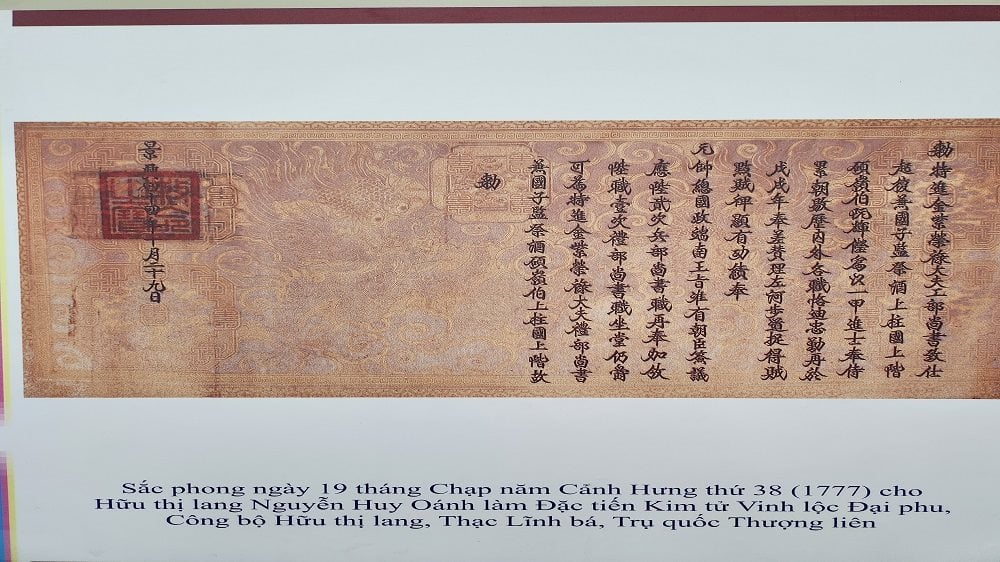 勅特進金紫榮祿大夫工部尚書致仕
起復兼國子監祭酒上柱國上階
碩嶺伯阮輝㒓為以一甲進士奉侍
累朝敭歷内外各職恪迪忠勤再於
戊戌年奉差贊理左河步道捉得賊
黠賊碑顯有功績奉
元帥總國政端南王旨准有朝臣簽議
應陞貳次兵部尚書職再奉加放
陞職壹次禮部尚書職坐堂仍爵
可為特進金紫榮祿大夫禮部尚書
兼國子監祭酒碩嶺伯上柱國上階故
勅
景興四十四年十月二十九日
Sắc phong ngày 19 tháng Chạp năm Cảnh Hưng thứ 38 (1777) cho
Hữu thị lang Nguyễn Huy Oánh làm Đặc tiến Kim tử Vinh lộc Đại phu,
Công bộ Hữu thị lang, Thạc Lĩnh bá, Trụ quốc Thượng liên